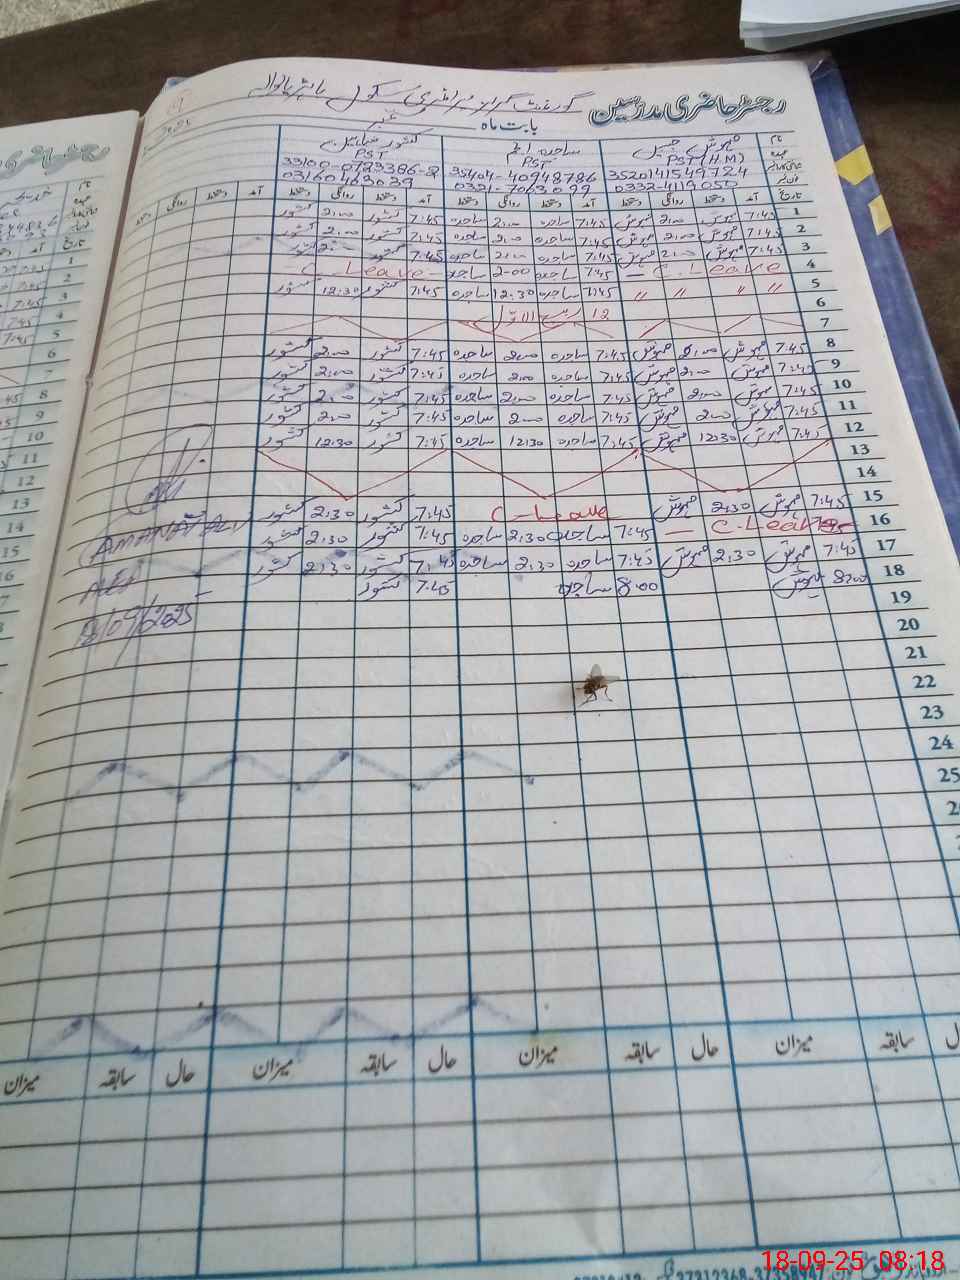 رجسٹر حاضری مدرسین
گورنمنٹ گرلز پرائمری سکول
بابت ماہ ستمبر
نام
عہدہ
مہوش
ساجدہ
کشور
PST (H.M)
PST
PST
3520141549724
35404-40948786
33100-0723386-2
0332-4119050
0321-7063099
03160463039
تاریخ آمد دستخط روانگی دستخط آمد دستخط روانگی دستخط آمد دستخط روانگی دستخط آمد دستخط روانگی دستخط
1 7:45 مہوش 2:00 مہوش 7:45 ساجدہ 2:00 ساجدہ 7:45 کشور 2:00 کشور
2 7:45 مہوش 2:00 مہوش 7:45 ساجدہ 2:00 ساجدہ 7:45 کشور 2:00 کشور
3 7:45 مہوش 2:00 مہوش 7:45 ساجدہ 2:00 ساجدہ 7:45 کشور 2:00 کشور
4 C. Leave 7:45 ساجدہ 2:00 ساجدہ C. Leave
5 " " " " 7:45 ساجدہ 12:30 ساجدہ 7:45 کشور 12:30 کشور
6 12 ربیع الاول
7
8 7:45 مہوش 2:00 مہوش 7:45 ساجدہ 2:00 ساجدہ 7:45 کشور 2:00 کشور
9 7:45 مہوش 2:00 مہوش 7:45 ساجدہ 2:00 ساجدہ 7:45 کشور 2:00 کشور
10 7:45 مہوش 2:00 مہوش 7:45 ساجدہ 2:00 ساجدہ 7:45 کشور 2:00 کشور
11 7:45 مہوش 2:00 مہوش 7:45 ساجدہ 2:00 ساجدہ 7:45 کشور 2:00 کشور
12 7:45 مہوش 12:30 مہوش 7:45 ساجدہ 12:30 ساجدہ 7:45 کشور 12:30 کشور
13
14
15 7:45 مہوش 2:30 مہوش C-Leave 7:45 کشور 2:30 کشور
16 C. Leave 7:45 ساجدہ 2:30 ساجدہ 7:45 کشور 2:30 کشور
17 7:45 مہوش 2:30 مہوش 7:45 ساجدہ 2:30 ساجدہ 7:45 کشور 2:30 کشور
18 8:00 مہوش 8:00 ساجدہ 7:45 کشور
AMANAT ALI
AEO
18/09/2025
19
20
21
22
23
24
25
حال سابقہ میزان حال سابقہ میزان حال سابقہ میزان
18-09-25 08:18